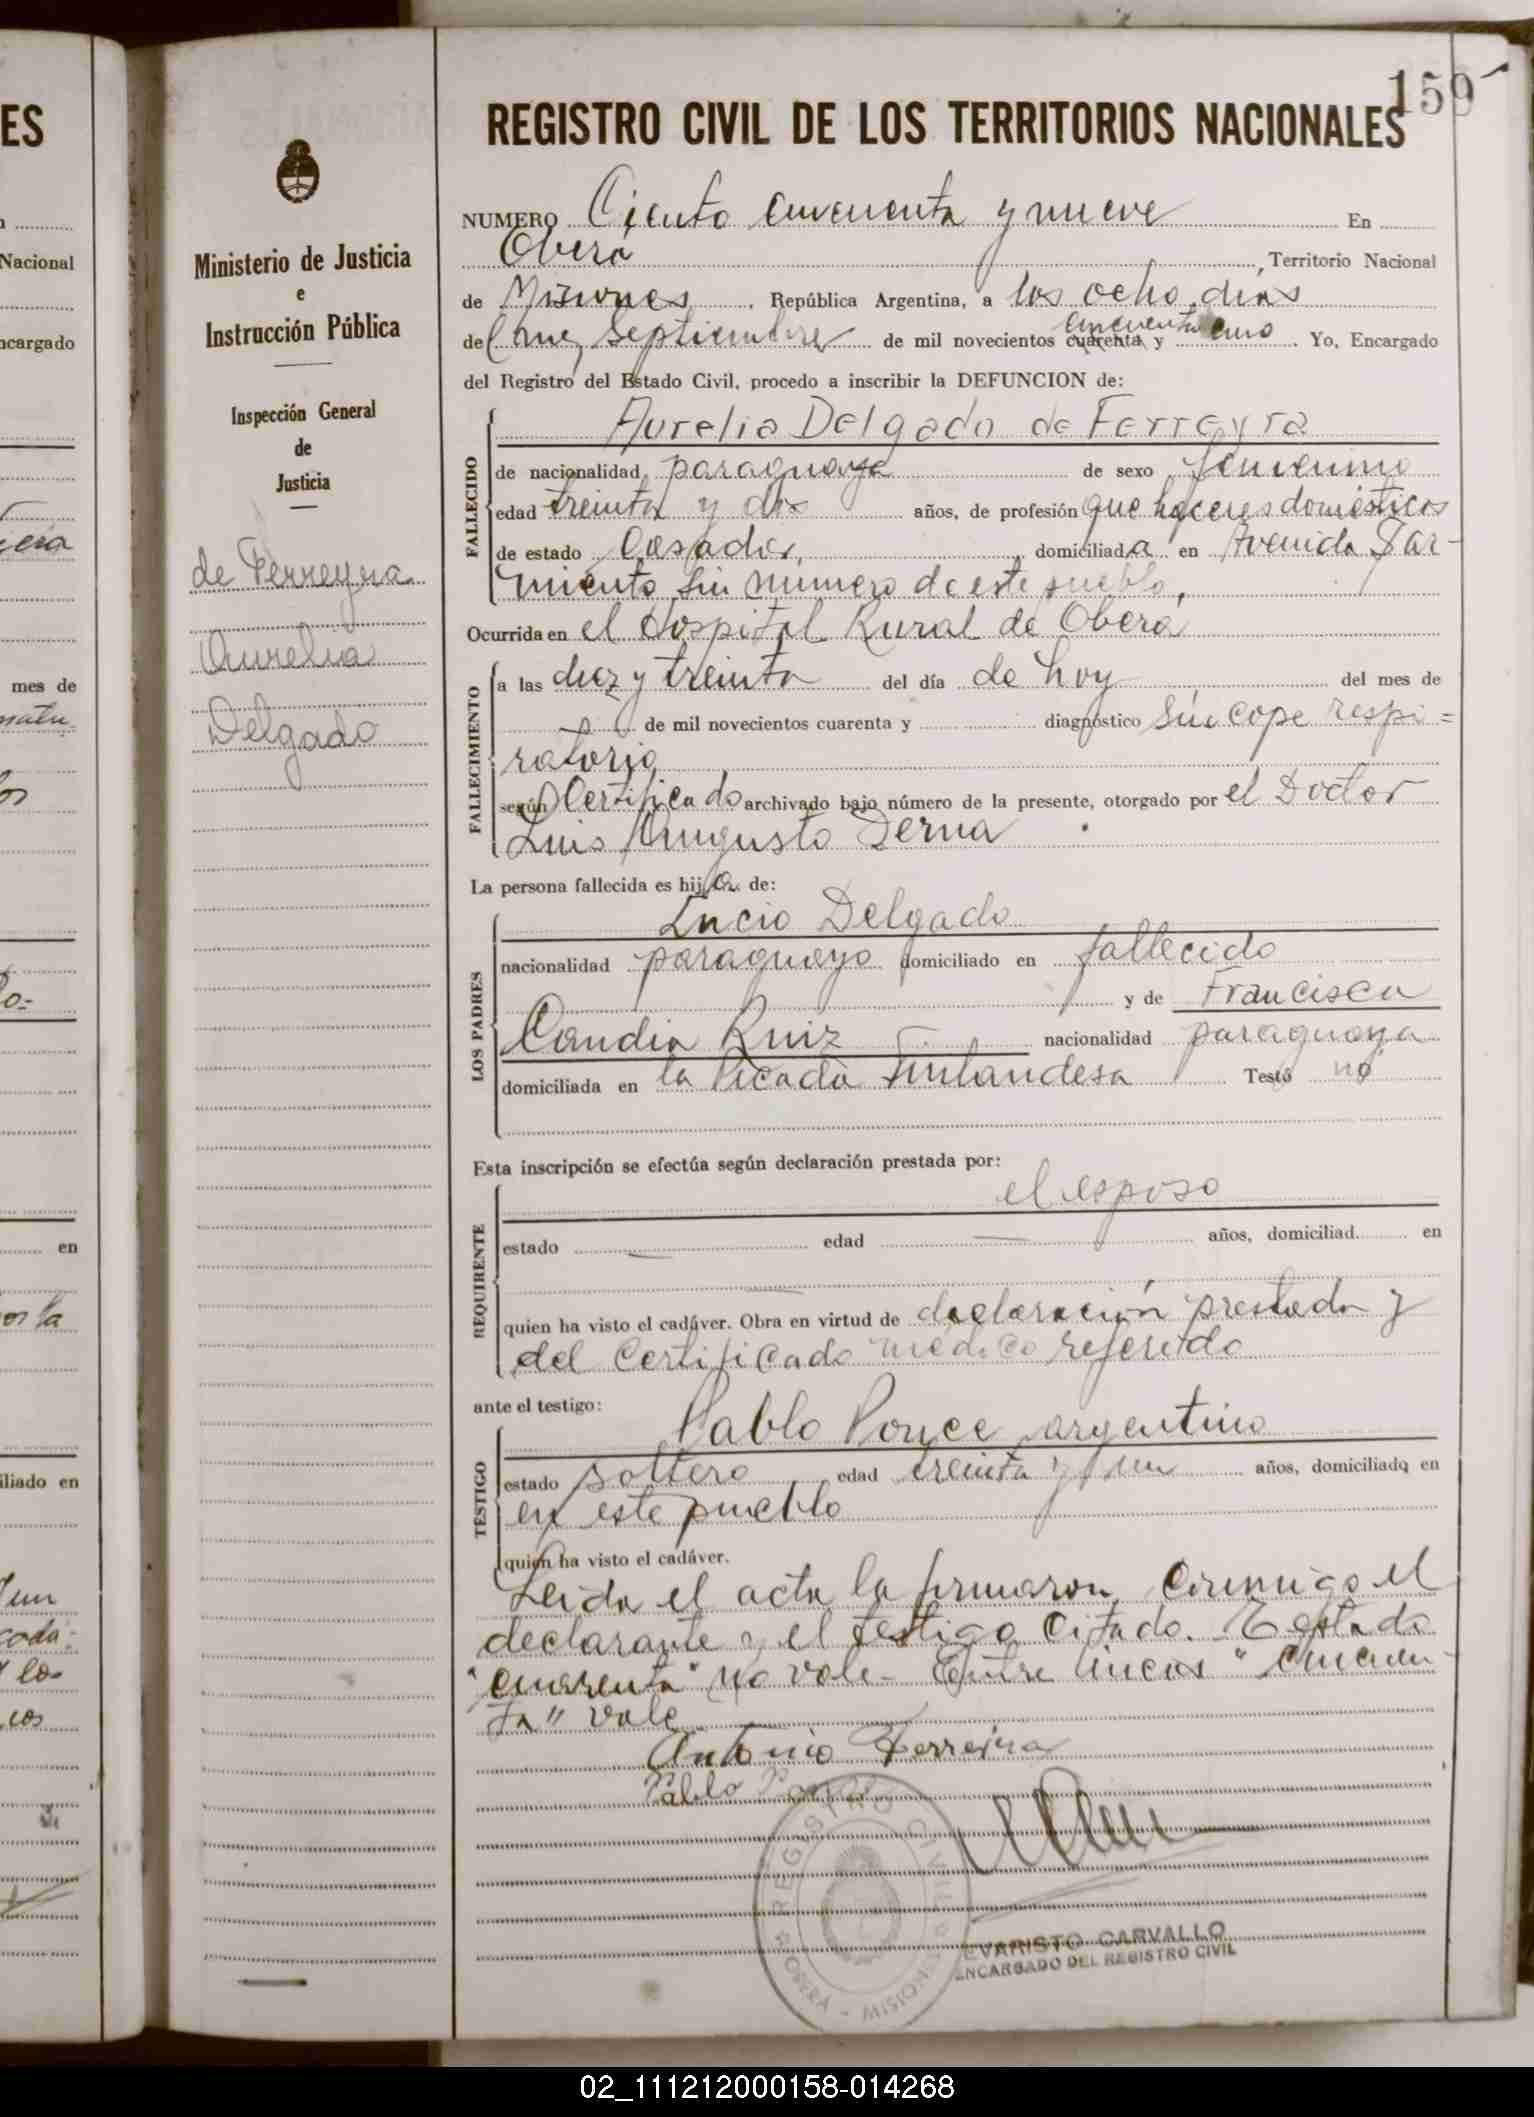 159
REGISTRO CIVIL DE LOS TERRITORIOS NACIONALES
NUMERO Ciento cincuenta y nueve En
Oberá, Territorio Nacional
de Misiones, República Argentina, a los ocho días
del mes Septiembre de mil novecientos cuarenta cincuenta y uno. Yo, Encargado
del Registro del Estado Civil, procedo a inscribir la DEFUNCION de:
FALLECIDO
Aurelia Delgado de Ferreyra
de nacionalidad paraguaya de sexo femenino
edad treinta y dos años, de profesión que haceres domésticos
de estado Casada, domiciliada en Avenida Sar-
miento sin numero de este pueblo.
Ocurrida en el Hospital Rural de Oberá
FALLECIMIENTO
a las diez y treinta del día de hoy del mes de
de mil novecientos cuarenta y diagnóstico Síncope respi=
ratorio
según Certificado archivado bajo número de la presente, otorgado por el Doctor
Luis Augusto Derna
La persona fallecida es hija de:
LOS PADRES
Lucio Delgado
nacionalidad paraguayo domiciliado en fallecido
y de Francisca
Candia Ruiz nacionalidad paraguaya
domiciliada en la Picada Finlandesa Testó no
Esta inscripción se efectúa según declaración prestada por:
REQUIRENTE
el esposo
estado — edad — años, domiciliad en
—
quien ha visto el cadáver. Obra en virtud de declaración prestada y
del Certificado médico referido
ante el testigo:
TESTIGO
Pablo Ponce argentino
estado soltero edad treinta y un años, domiciliado en
en este pueblo
quien ha visto el cadáver.
Leida el acta la firmaron conmigo el
declarante y el testigo citado. Testado
"cuarenta" no vale- Entre lineas "cincuen-
ta" vale
Antonio Ferreira
Pablo Ponce
REGISTRO CIVIL
OBERA - MISIONES
EVARISTO CARVALLO
ENCARGADO DEL REGISTRO CIVIL
Ministerio de Justicia
e
Instrucción Pública
Inspección General
de
Justicia
de Ferreyra
Aurelia
Delgado
ES
Nacional
ncargado
mes de
en
iliado en
02_111212000158-014268